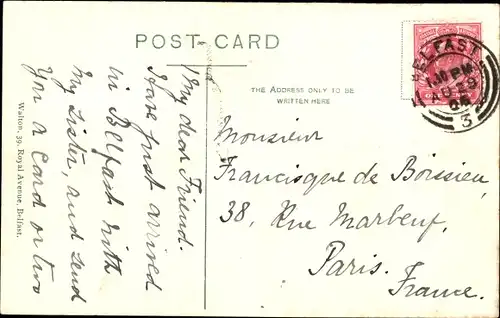 POST-CARD
My dear Friend.
I have just arrived
in Belfast with
my Sister, and send
You a Card or two
Walton, 39, Royal Avenue, Belfast.
THE ADDRESS ONLY TO BE
WRITTEN HERE
BELFAST
3
Monsieur
Francisque de Boissieu,
38, Rue Marbeuf,
Paris.
France.